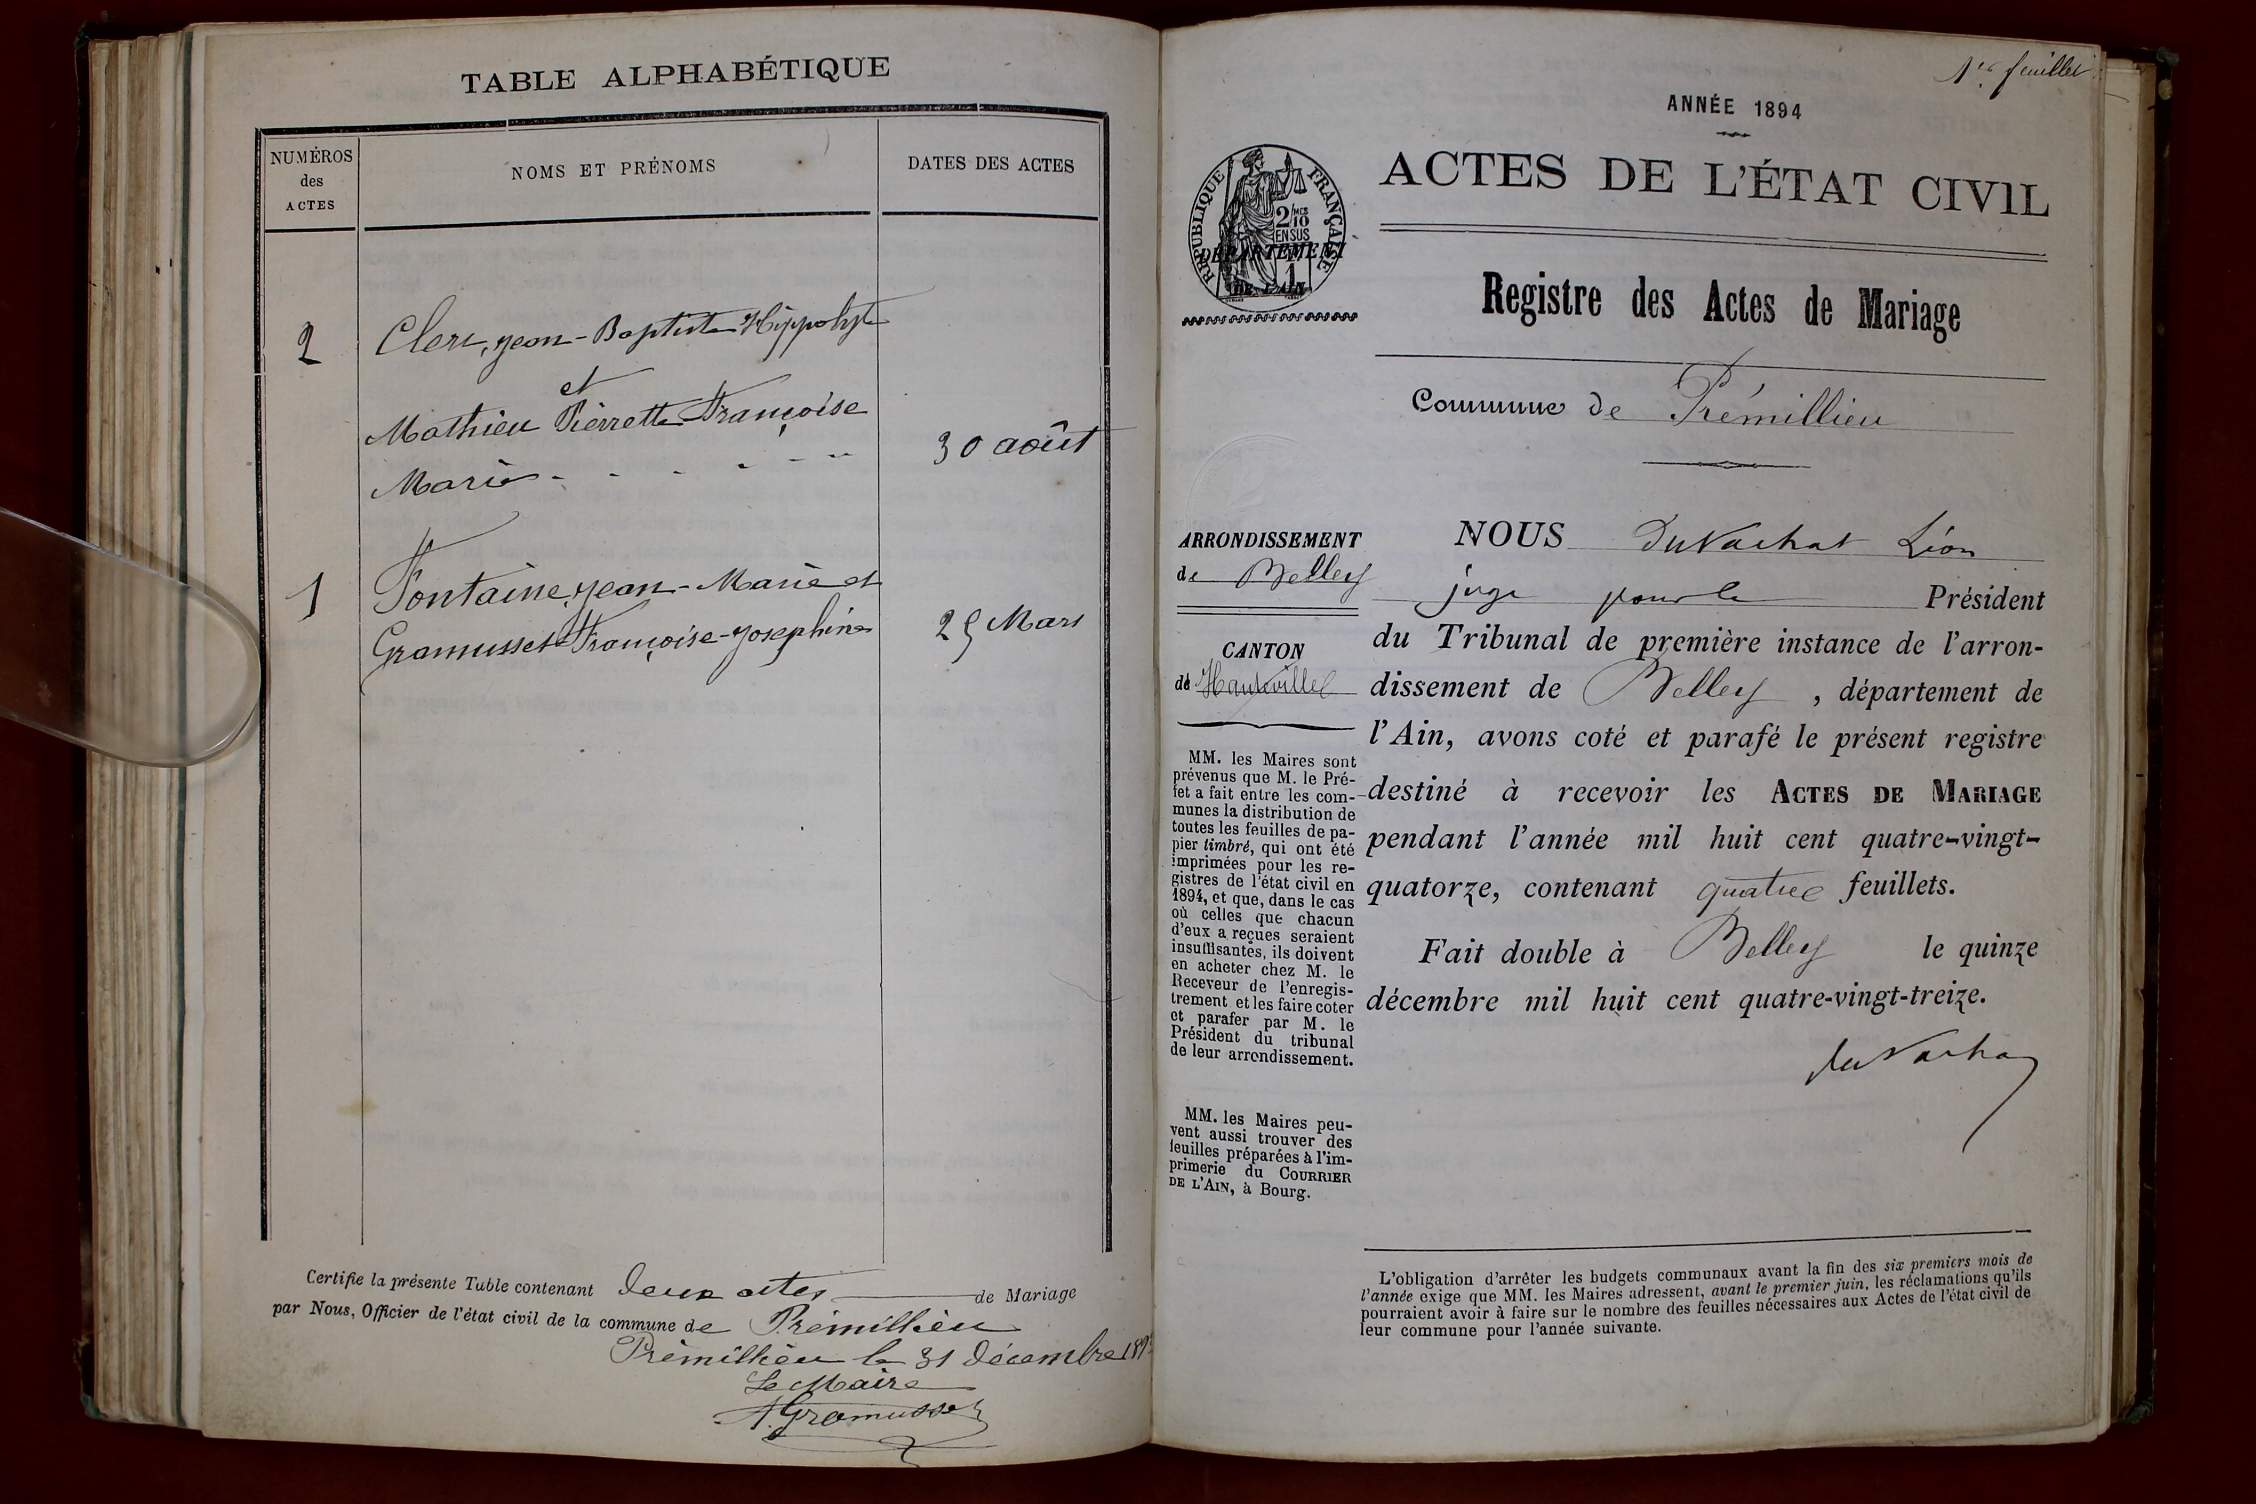 TABLE ALPHABÉTIQUE
NUMÉROS
des
ACTES
NOMS ET PRÉNOMS
DATES DES ACTES
2
Clerc, Jean-Baptiste Hippolyte
et
Mathieu Pierrette Françoise
Marie - - - - - -
30 août
1
Fontaine, Jean-Marie et
Gramusset Françoise-Josephine
25 Mars
Certifie la présente Table contenant deux actes de Mariage
par Nous, Officier de l'état civil de la commune de Prémillieu
Prémillieu le 31 décembre 189
Le Maire
Gramusset
1er feuillet
ANNÉE 1894
ACTES DE L'ÉTAT CIVIL
RÉPUBLIQUE FRANÇAISE
2/10MES
EN SUS
1
DÉPARTEMENT
DE L'AIN
Registre des Actes de Mariage
Commune de Prémillieu
ARRONDISSEMENT
de Belley
CANTON
de Hauteville
MM. les Maires sont
prévenus que M. le Pré-
fet a fait entre les com-
munes la distribution de
toutes les feuilles de pa-
pier timbré, qui ont été
imprimées pour les re-
gistres de l'état civil en
1894, et que, dans le cas
où celles que chacun
d'eux a reçues seraient
insuffisantes, ils doivent
en acheter chez M. le
Receveur de l'enregis-
trement et les faire coter
et parafer par M. le
Président du tribunal
de leur arrondissement.
MM. les Maires peu-
vent aussi trouver des
feuilles préparées à l'im-
primerie du COURRIER
DE L'AIN, à Bourg.
NOUS DuVachat Léon
juge pour le Président
du Tribunal de première instance de l'arron-
dissement de Belley, département de
l'Ain, avons coté et parafé le présent registre
destiné à recevoir les ACTES DE MARIAGE
pendant l'année mil huit cent quatre-vingt-
quatorze, contenant quatre feuillets.
Fait double à Belley le quinze
décembre mil huit cent quatre-vingt-treize.
duVachat
L'obligation d'arrêter les budgets communaux avant la fin des six premiers mois de
l'année exige que MM. les Maires adressent, avant le premier juin, les réclamations qu'ils
pourraient avoir à faire sur le nombre des feuilles nécessaires aux Actes de l'état civil de
leur commune pour l'année suivante.